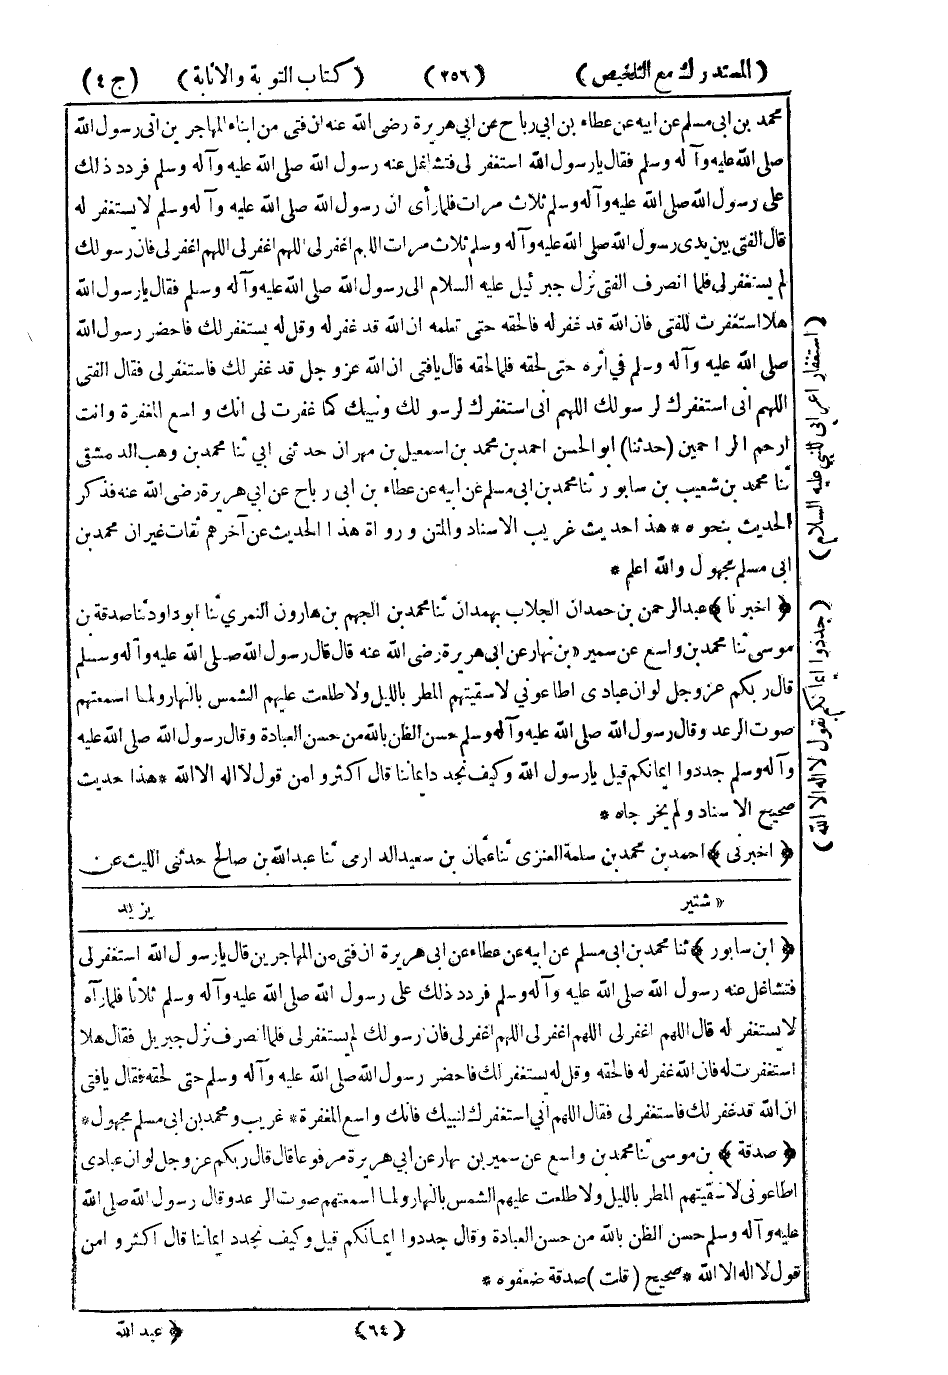 (المستدرك مع التلخيص) (٢٥٦) (كتاب التوبة والانابة) (ج ٤)
محمد بن ابى مسلم عن ابيه عن عطاء بن ابي رباح عن ابي هريرة رضى الله عنه ان فتى من ابناء المهاجرين اتى رسول الله
صلى الله عليه وآله وسلم فقال يا رسول الله استغفر لى فتشاغل عنه رسول الله صلى الله عليه وآله وسلم فردد ذلك
على رسول الله صلى الله عليه وآله وسلم ثلاث مرات فلما رأى ان رسول الله صلى الله عليه وآله وسلم لا يستغفر له
قال الفتى بين يدى رسول الله صلى الله عليه وآله وسلم ثلاث مرات اللهم اغفر لى اللهم اغفر لى اللهم اغفر لى فان رسولك
لم يستغفر لى فلما انصرف الفتى نزل جبرئيل عليه السلام الى رسول الله صلى الله عليه وآله وسلم فقال يا رسول الله
هلا استغفرت للفتى فان الله قد غفر له فالحقه حتى تعلمه ان الله قد غفر له وقل له يستغفر لك فاحضر رسول الله
صلى الله عليه وآله وسلم في اثره حتى لحقه فلما لحقه قال يافتى ان الله عز وجل قد غفر لك فاستغفر لى فقال الفتى
اللهم انى استغفرك لرسولك اللهم انى استغفرك لرسولك ونبيك كما غفرت لى انك واسع المغفرة وانت
ارحم الراحمين (حدثنا) ابو الحسن احمد بن محمد بن اسمعيل بن مهران حدثنى ابي ثنا محمد بن وهب الدمشقى
ثنا محمد بن شعيب بن سابور ثنا محمد بن ابى مسلم عن ابيه عن عطاء بن ابى رباح عن ابي هريرة رضى الله عنه فذكر
الحديث بنحوه * هذا حديث غريب الاسناد والمتن ورواة هذا الحديث عن آخرهم ثقات غير ان محمد بن
ابى مسلم مجهول والله اعلم *
﴿ اخبرنا ﴾ عبد الرحمن بن حمدان الجلاب بهمدان ثنا محمد بن الجهم بن هارون النمري ثنا ابو داود ثنا صدقة بن
موسى ثنا محمد بن واسع عن سمير « بن نهار عن ابى هريرة رضى الله عنه قال قال رسول الله صلى الله عليه وآله وسلم
قال ربكم عز وجل لو ان عبادى اطاعوني لاسقيتهم المطر بالليل ولاطلعت عليهم الشمس بالنهار ولما اسمعتهم
صوت الرعد وقال رسول الله صلى الله عليه وآله وسلم حسن الظن بالله من حسن العبادة وقال رسول الله صلى الله عليه
وآله وسلم جددوا ايمانكم قيل يا رسول الله وكيف نجدد ايماننا قال اكثروا من قول لا اله الا الله * هذا حديث
صحيح الاسناد ولم يخرجاه *
﴿ اخبرنى ﴾ احمد بن محمد بن سلمة العنزى ثنا عثمان بن سعيد الدارمى ثنا عبد الله بن صالح حدثنى الليث عن
« شتير
يزيد
﴿ ابن سابور ﴾ ثنا محمد بن ابى مسلم عن ابيه عن عطاء عن ابى هريرة ان فتى من المهاجرين قال يا رسول الله استغفر لى
فتشاغل عنه رسول الله صلى الله عليه وآله وسلم فردد ذلك على رسول الله صلى الله عليه وآله وسلم ثلاثا فلما رآه
لا يستغفر له قال اللهم اغفر لى اللهم اغفر لى اللهم اغفر لى فان رسولك لم يستغفر لى فلما انصرف نزل جبريل فقال هلا
استغفرت له فان الله غفر له فالحقه وقل له يستغفر لك فاحضر رسول الله صلى الله عليه وآله وسلم حتى لحقه فقال يافتى
ان الله قد غفر لك فاستغفر لى فقال اللهم أني استغفرك لنبيك فانك واسع المغفرة * غريب ومحمد بن ابى مسلم مجهول *
﴿ صدقة ﴾ بن موسى ثنا محمد بن واسع عن سمير بن نهار عن ابي هريرة مرفوعا قال قال ربكم عز وجل لو ان عبادى
اطاعونى لاسقيتهم المطر بالليل ولاطلعت عليهم الشمس بالنهار ولما اسمعتهم صوت الرعد وقال رسول الله صلى الله
عليه وآله وسلم حسن الظن بالله من حسن العبادة وقال جددوا ايمانكم قيل وكيف نجدد ايماننا قال اكثروا من
قول لا اله الا الله * صحيح (قلت) صدقة ضعفوه *
(٦٤)
﴿ عبد الله
(استغفار اعرابى للنبي عليه السلام)
(جددوا ايمانكم بقول لا اله الا الله)